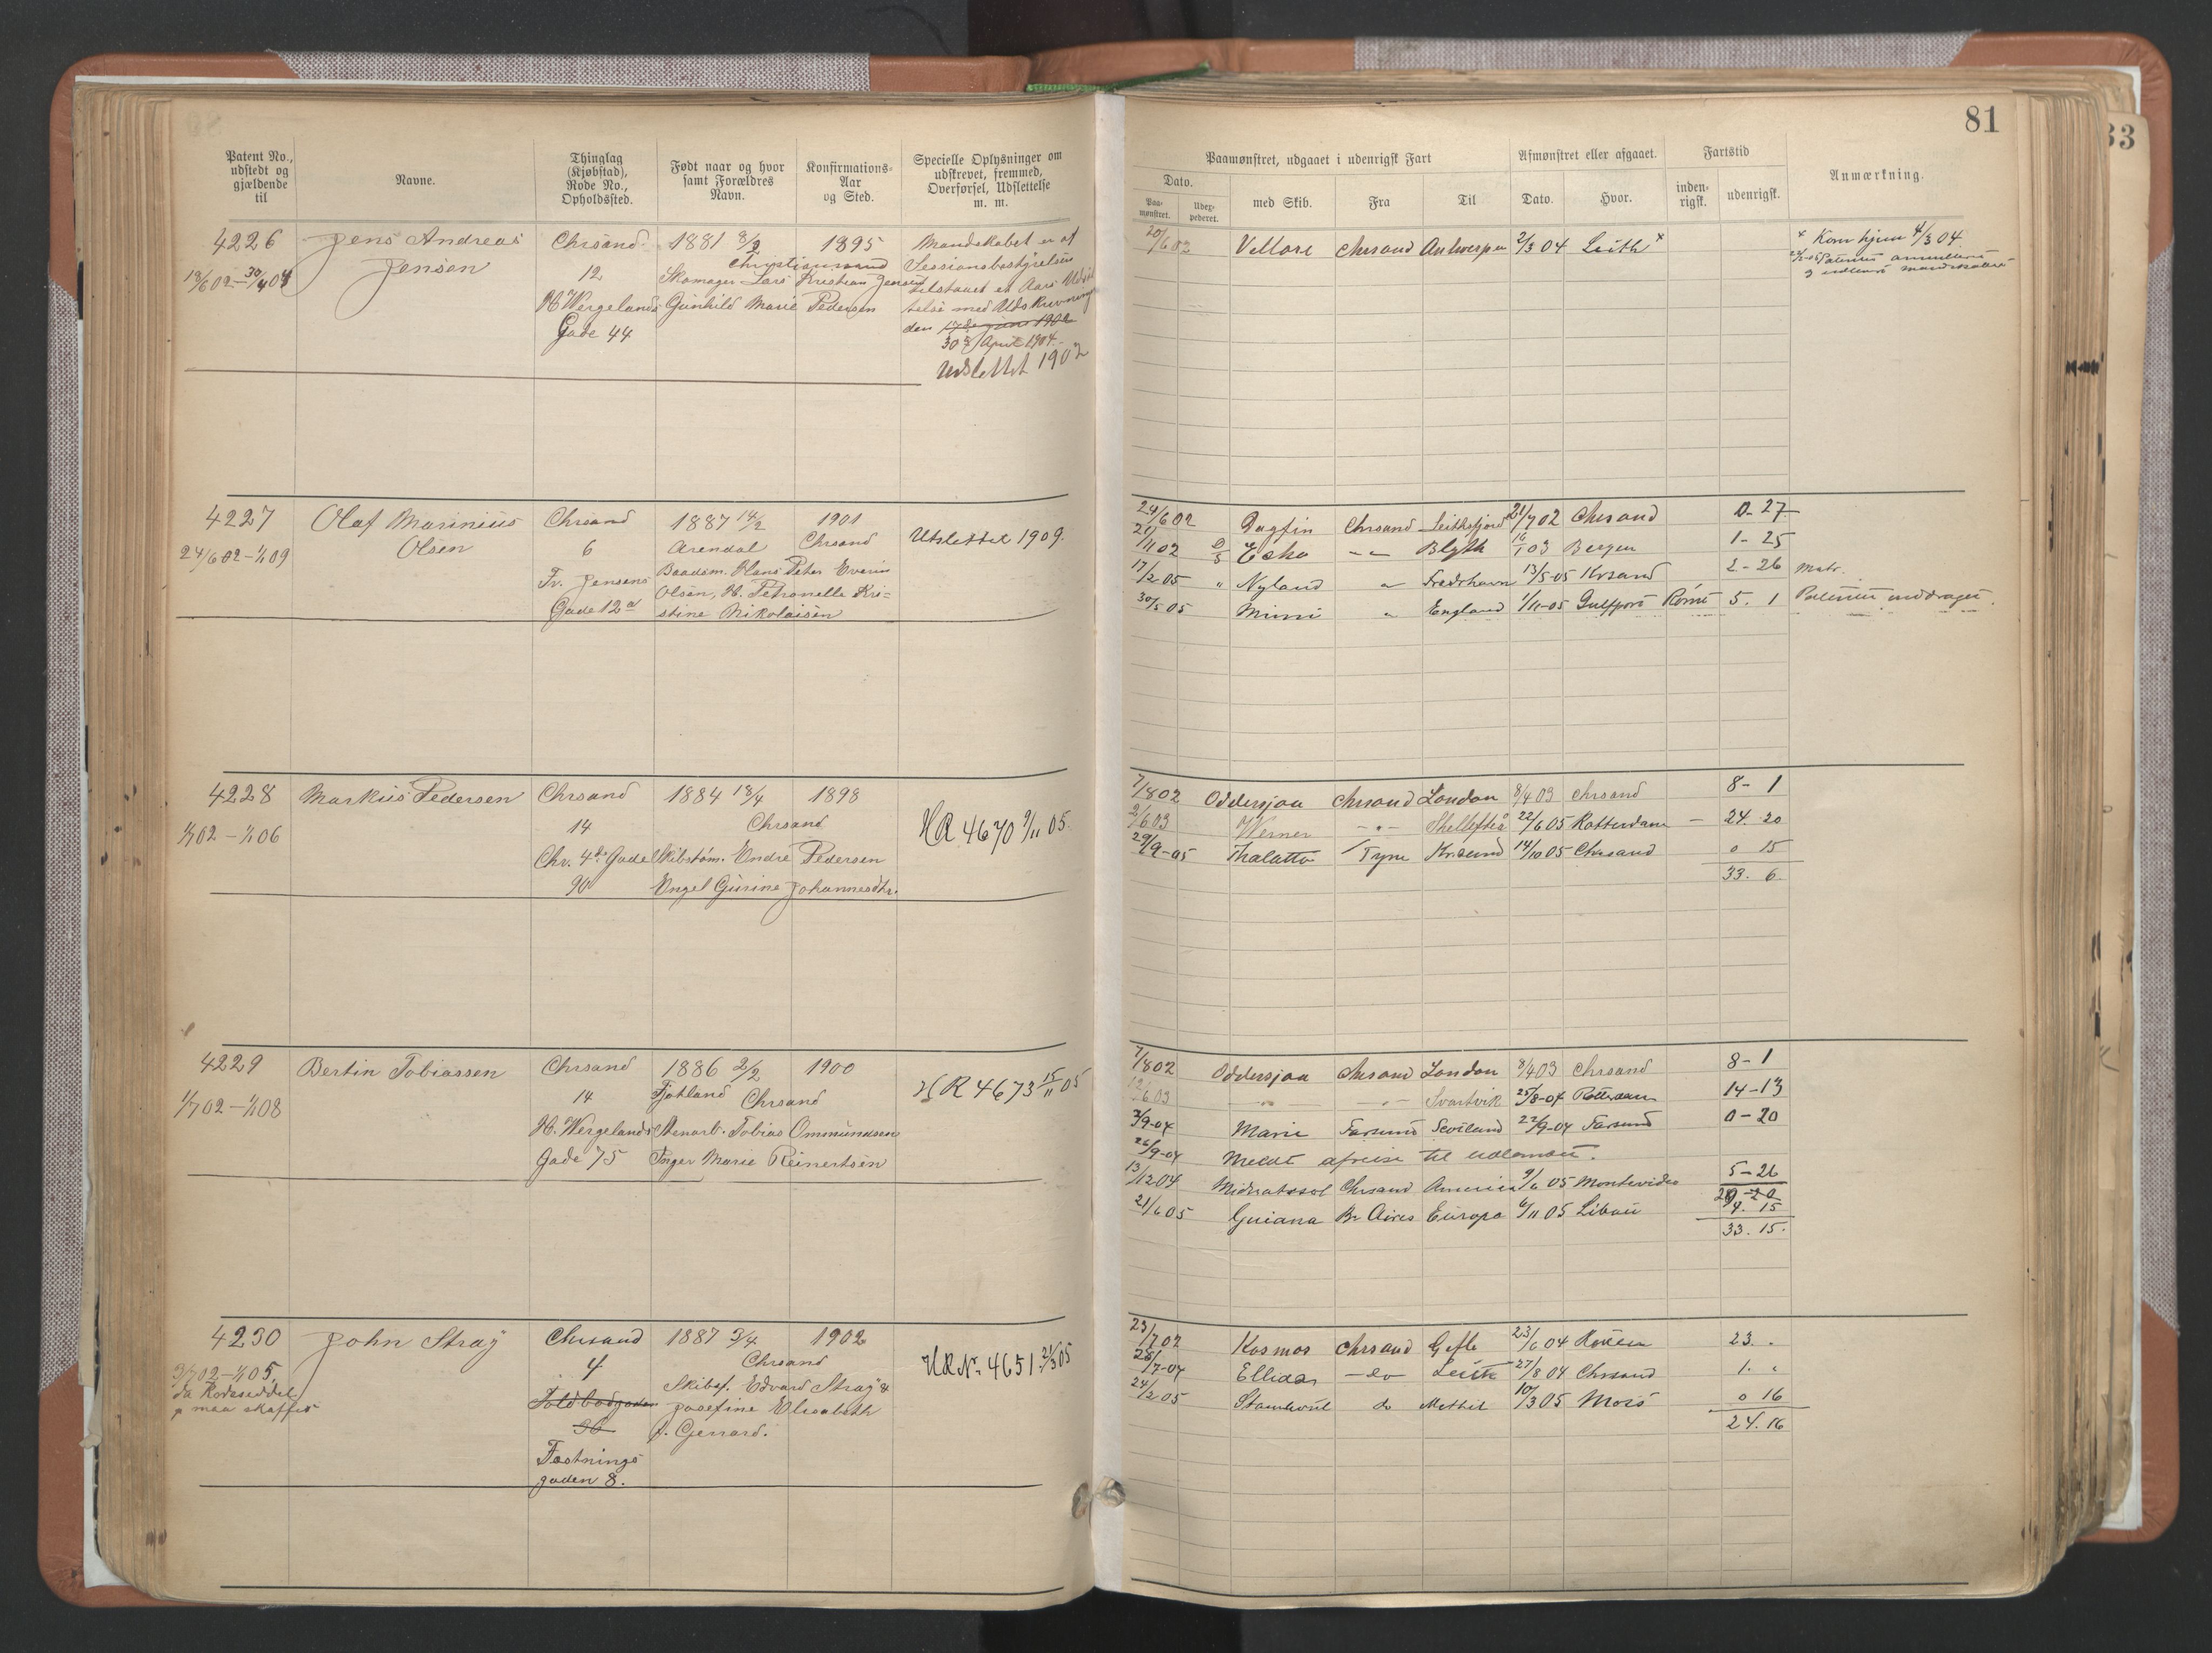 81
33
Patent No., udstedt og gjældende til
Navne.
Thinglag (Kjøbstad), Rode No., Opholdssted.
Født naar og hvor samt Forældres Navn.
Konfirmations-Aar og Sted.
Specielle Oplysninger om udskrevet, fremmed, Overførsel, Udslettelse m. m.
Paamønstret, udgaaet i udenrigsk Fart
Afmønstret eller afgaaet.
Fartstid
Anmærkning.
Dato.
Paa-mønstret.
Udex-pederet.
med Skib.
Fra
Til
Dato.
Hvor.
inden-rigsk.
udenrigsk.
4226 Jens Andreas Chrsand 1881 8/2 1895 Mandskabet er af
Jensen Christianssand Sessionsbestyrelsen
18/6 02 - 30/4 04 12 Skomager Lars Kristian Jensen tilstaaet et Aars Udsæt
H. Wergelands Gunhild Marie Pedersen telse med Udskrivning
Gade 44 den 17de juni 1902
30 April 1904.
Udslettet 1907
20/6 02 Vellore Chrsand Antwerpen 2/3 04 Leith x
x Kom hjem 4/3 04
4227 Olaf Marinius Chrsand 1887 14/2 1901 Utslettet 1909.
Olsen 6 Arendal Chrsand
24/6 02 - 1/1 09
Fr. Jensens Baadsm. Hans Peter Everin
Gade 12a Olsen, H. Petronelle Kri-
stine Nikolaisen
24/6 02 Dagfin Chrsand Seithsfjord 21/7 02 Chrsand 0-27
21/11 02 D/S Echo -"- Blyth 16/1 03 Bergen 1-25
17/2 05 " Nyland " Fredrhavn 13/5-05 Krsand 2-26 Matr.
30/5 05 Mimi " England 1/11-05 Gulfport Rømt 5. 1 Patentet inddraget.
4228 Markus Pedersen Chrsand 1884 18/4 1898 HR 4670 9/11 05.
1/7 02 - 1/1 06 14 Chrsand
Chr. 4des Gade Skibstøm. Endre Pedersen
90 Engel Gurine Johannesdtr.
7/8 02 Oddersjaa Chrsand London 8/4 03 Chrsand 8-1
2/6 03 Werner -"- Skellefteå 22/6 05 Rotterdam - 24. 20
29/9-05 Thalatta Tyne Krsund 14/10 05 Chrsand 0 15
33. 6
4229 Bertin Tobiassen Chrsand 1886 2/2 1900 HR 4673 15/11 05
1/7 02 - 1/1 08 14 Fjotland Chrsand
H. Wergelands Stenarb. Tobias Ommundsen
Gade 75 Inger Marie Reinertsen
7/8 02 Oddersjaa Chrsand London 8/4 03 Chrsand 8-1
12/6 03 -"- -"- Svartvik 25/8-04 Rotterdam 14-13
3/9-04 Marie Farsund Scotland 22/9-04 Farsund 0-20
26/9-04 Meldt afreise til udlandet.
13/12 04 Midnatssol Chrsand Amerika 9/6 05 Montevideo 5-26
21/6 05 Guiana Bs Aires Europa 6/11 05 Libau 4. 15
33. 15.
4230 John Stray Chrsand 1887 3/4 1902 HR No. 4651 21/3 05
3/7 02 - 1/1 05, 4 Chrsand
da Rodeseddel Toldbodgaden Skibsf. Edvard Stray &
maa skaffes 36 Josefine Elisabeth
f. Gerrard.
Festnings
gaden 8.
23/7 02 Kosmos Chrsand Gefle 23/6 04 Rouen 23. "
28/7-04 Ellida -do Leith 27/8 04 Chrsand 1. "
24/2 05 Stamhout do Methil 10/3 05 Moss 0 16
24. 16